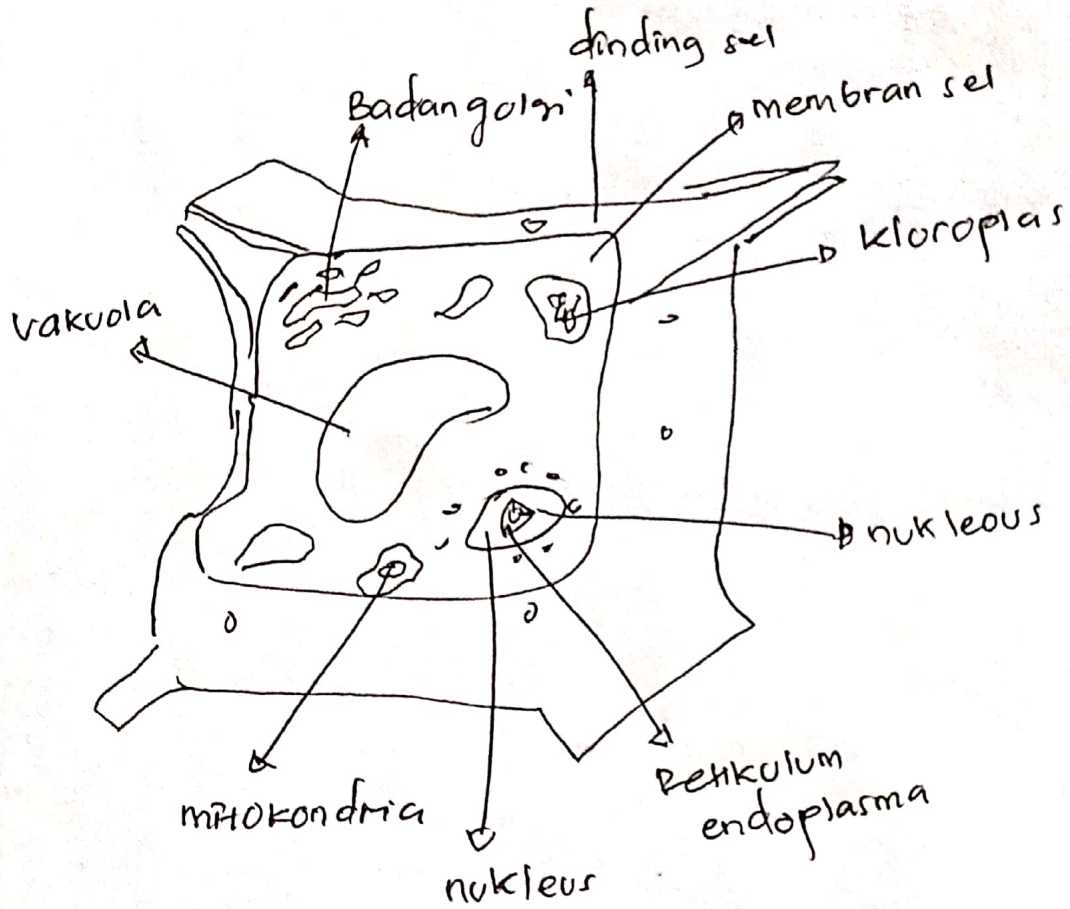 dinding sel
Badan golgi
membran sel
kloroplas
vakuola
nukleous
Retikulum
endoplasma
mitokondria
nukleus